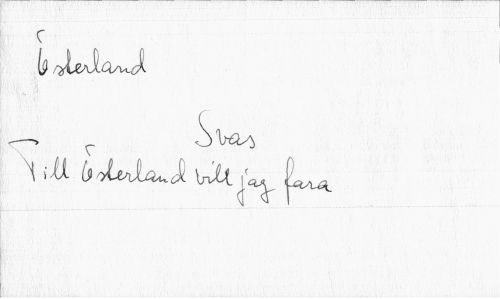 Österland
Svas
Till Österland vill jag fara